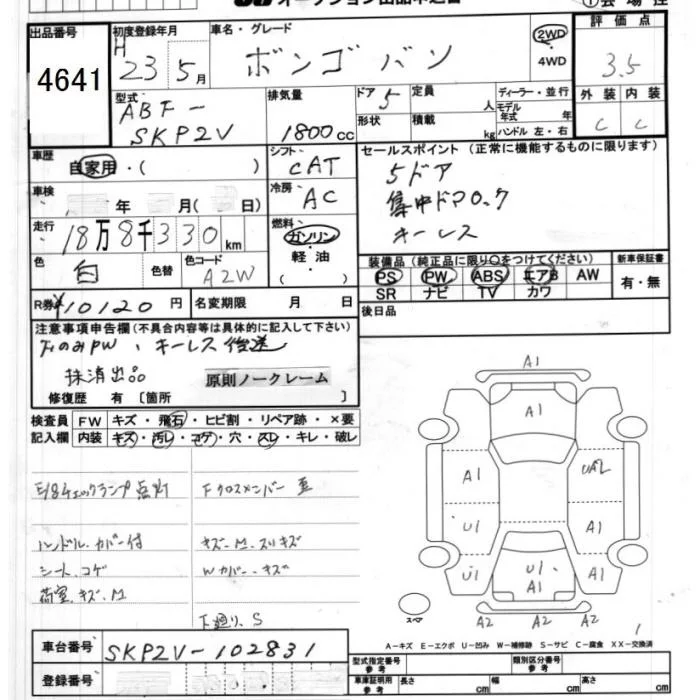 オークション出品申込書
会場控
出品番号
4641
初度登録年月
H 23 5月
車名・グレード
ボンゴ バン
2WD
・
4WD
評価点
3.5
型式
ABF-
SKP2V
排気量
1800cc
ドア
5
形状
定員
人
積載
kg
ディーラー・並行
モデル年式
年
ハンドル 左・右
外装
内装
C
C
車歴
自家用・( )
車検
年 月( 日)
走行
18万8千330km
色
白
色替
色コード
A2W
シフト
CAT
冷房
AC
燃料
ガソリン
・
軽油
( )
セールスポイント(正常に機能するものに限ります)
5ドア
集中ドアロック
キーレス
装備品(純正品に限り○をつけてください)
PS PW ABS エアB AW
SR ナビ TV カワ
新車保証書
有・無
R券 ¥10120円
名変期限 月 日
後日品
注意事項申告欄(不具合内容等は具体的に記入して下さい)
キーレス後送
抹消出品
原則ノークレーム
修復歴 有 〔箇所 〕
検査員
記入欄
FW キズ・飛石・ヒビ割・リペア跡・×要
内装 キズ・汚レ・コゲ・穴・スレ・キレ・破レ
E/gチェックランプ点灯
Fクロスメンバー
ハンドル.カバー付
キズ-M.スリキズ
シート.コゲ
Wカバー.キズ
荷室.キズ.M
下廻り.S
A1
A1
A1
U1
A1
U1
U1
A1
A1
A2
A2
A2
スペア
1
A-キズ E-エクボ U-凹み W-補修跡 S-サビ C-腐食 XX-交換済
車台番号
SKP2V-102831
登録番号
型式指定番号
参考
類別区分番号
参考
車庫証明用
参考
長さ cm
幅 cm
高さ cm